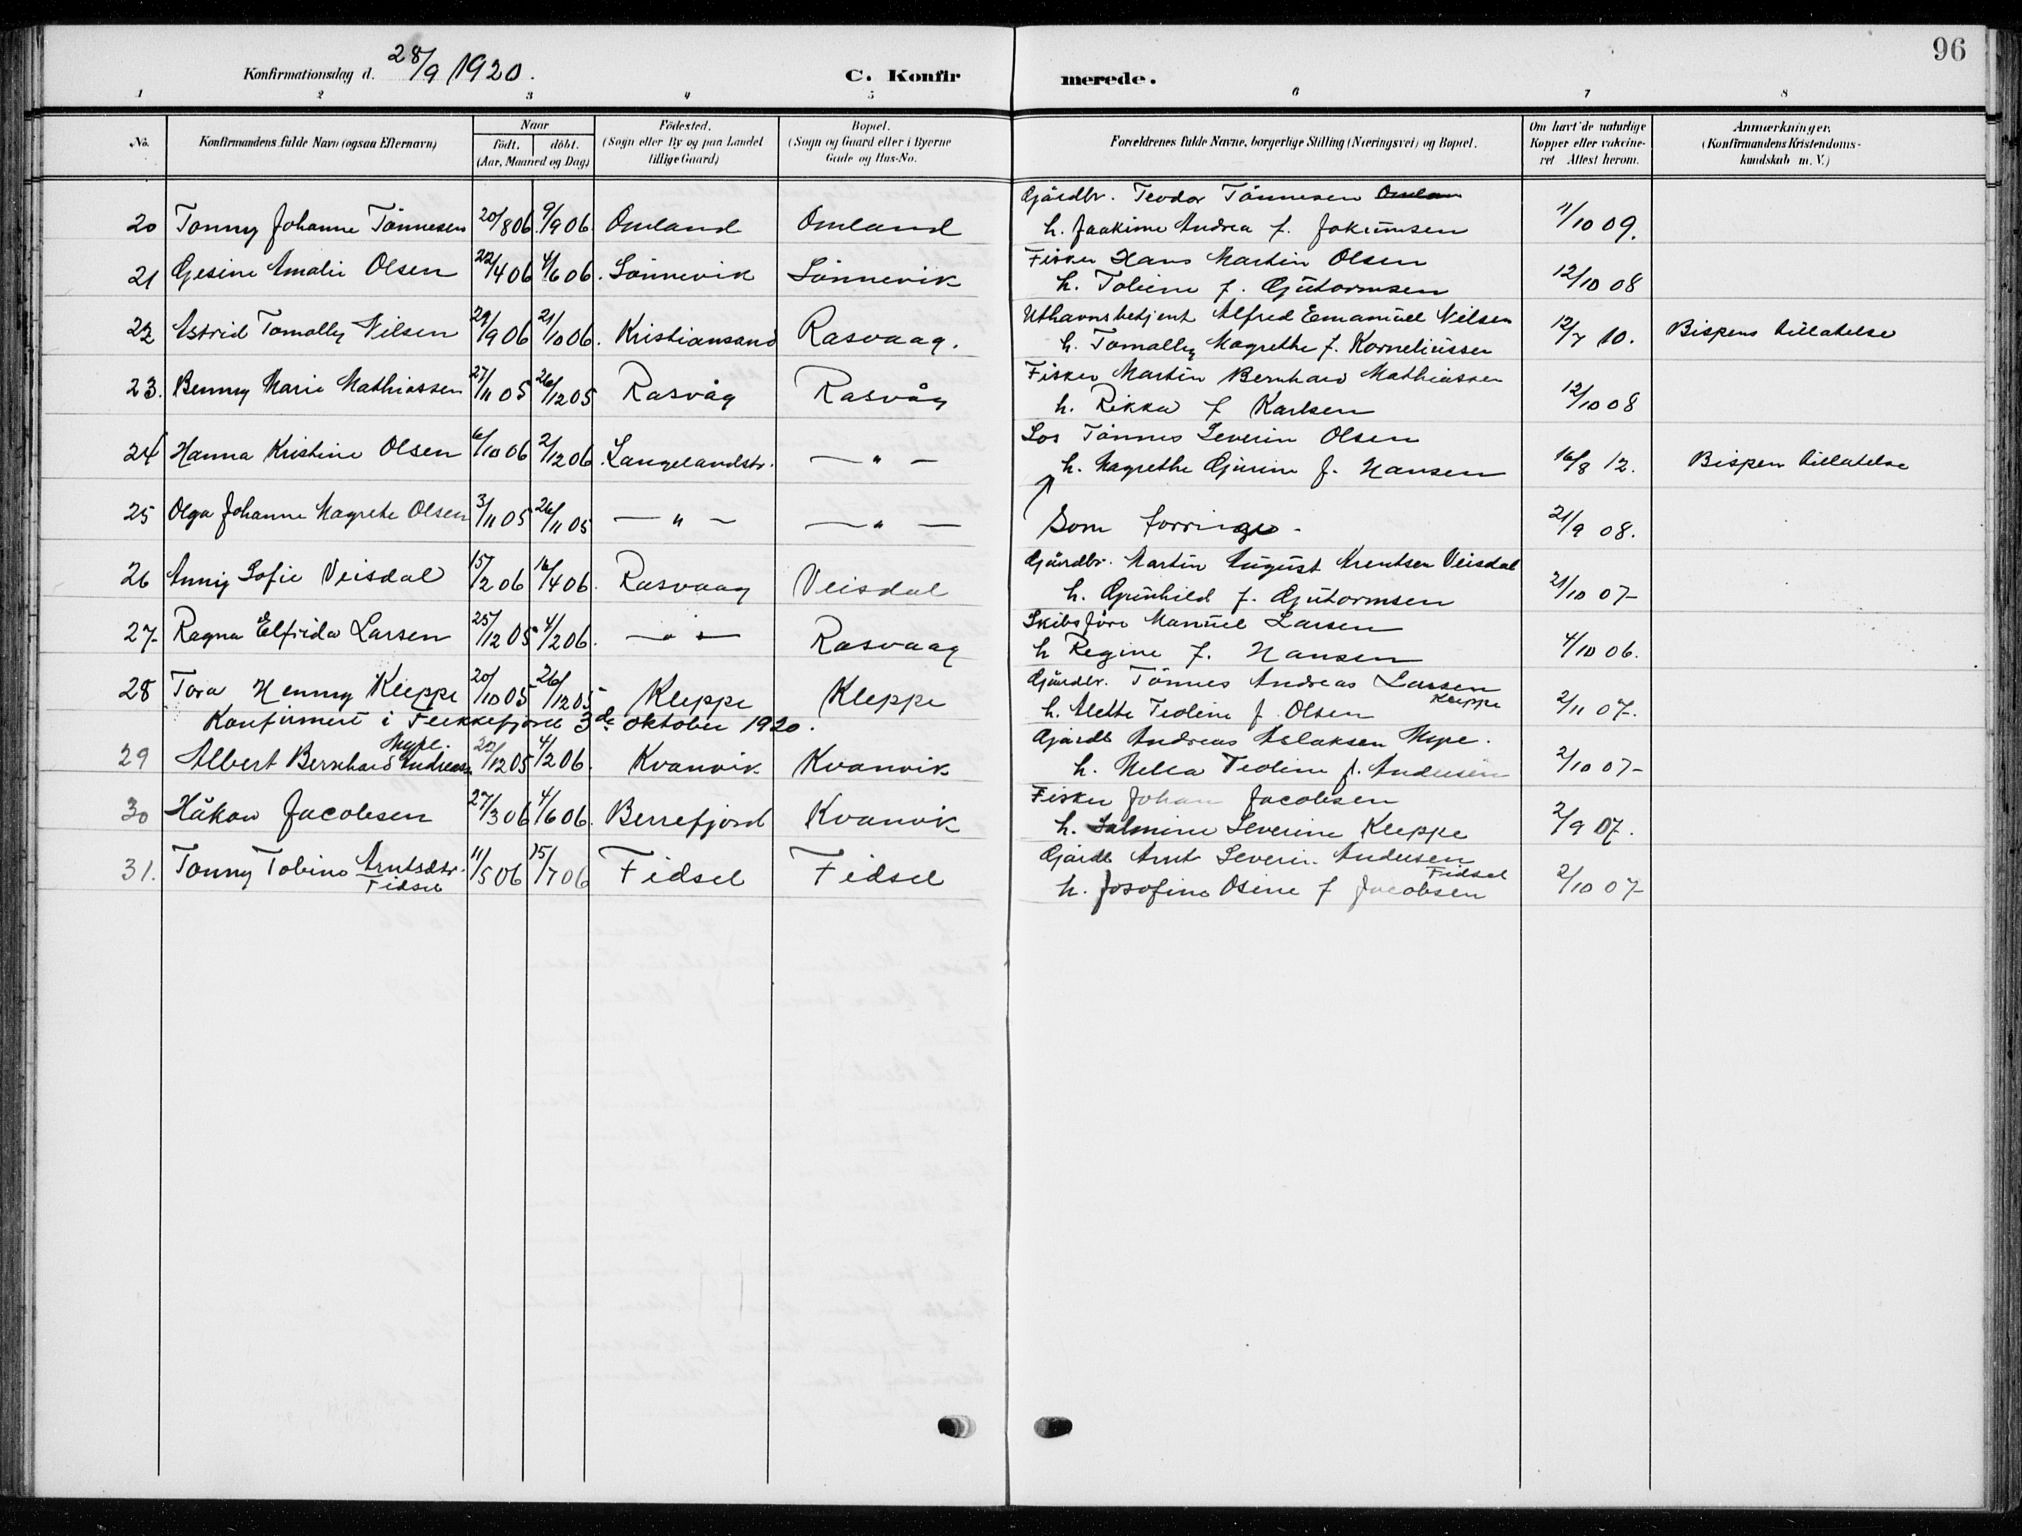 Konfirmationsdag d. 28/9 1920. C. Konfirmerede. 96
1 2 3 4 5 6 7 8
No. Konfirmandens fulde Navn (ogsaa Efternavn) Naar født. døbt. (Aar, Maaned og Dag) Fødested. (Sogn eller By og paa Landet tillige Gaard) Bopæl. (Sogn og Gaard eller i Byerne Gade og Hus-No. Forældrenes fulde Navne, borgerlige Stilling (Næringsvei) og Bopæl. Om havt de naturlige Kopper eller vaccineret Attest herom. Anmærkninger. (Konfirmandens Kristendomskundskab m. V.)
Gjårdbr. Teodor Tønnesen Omlan
20 Tonny Johanne Tønnesen 20/8 06. 9/9 06. Omland Omland h. Joakime Andrea f. Jokumsen 11/10 09.
Fisker Hans Martin Olsen
21 Gesine Amalie Olsen 22/4 06 4/6 06. Sønnevik Sønnevik h. Toline f. Gutormsen 12/10 08
Uthavnsbetjent Alfred Emanuel Nilsen
22 Astrid Tomally Nilsen 29/9 06 21/10 06. Kristiansand Rasvaag. h. Tomally Magrethe f. Korneliussen 12/7 10. Bispens tillatelse
Fisker Martin Bernhard Mathiassen
23. Benny Marie Mathiassen 27/11 05 26/12 05 Rasvåg Rasvåg h. Rikka f Karlsen 12/10 08
Los Tønnes Severin Olsen
24 Hanna Kristine Olsen 6/10 06 2/12 06. Langelandstr. — " — h. Magrethe Gurine f. Hansen 16/8 12. Bispen tillatelse
25 Olga Johanne Magrete Olsen 3/11 05 26/11 05 — " — — " — Som forrige - 21/9 08.
Gjårdbr. Martin August Arentsen Veisdal
26 Anny Sofie Veisdal 15/2 06 16/4 06. Rasvaag Veisdal h. Gunhild f. Gutormsen 21/10 07-
Skibsføre Manuel Larsen
27- Ragna Elfrida Larsen 25/12 05 4/2 06. — " — Rasvaag h Regine f. Hansen 4/10 06.
Gjårdbr. Tønnes Andreas Larsen Kleppe
28 Tora Henny Kleppe 20/10 05 26/12 05 Kleppe Kleppe h. Alette Teoline f. Olsen 2/11 07.
Konfirmert i Flekkefjord 3de oktober 1920.
Gjårdb Andreas Aslaksen Mype.
29 Albert Bernhard Andreassn Mype. 22/12 05 4/2 06. Kvanvik Kvanvik h. Mella Teoline f. Andersen 2/10 07-
Fisker Johan Jacobsen
30 Håkon Jacobsen 27/3 06 4/6 06. Berrefjord Kvanvik h. Salmine Severine Kleppe 2/9 07.
Gjårdb Arnt Severin Andersen Fidsel
31. Tonny Tobine Arntsdtr. Fidsel 11/5 06 15/7 06 Fidsel Fidsel h. Josefine Osine f Jacobsen 2/10 07-